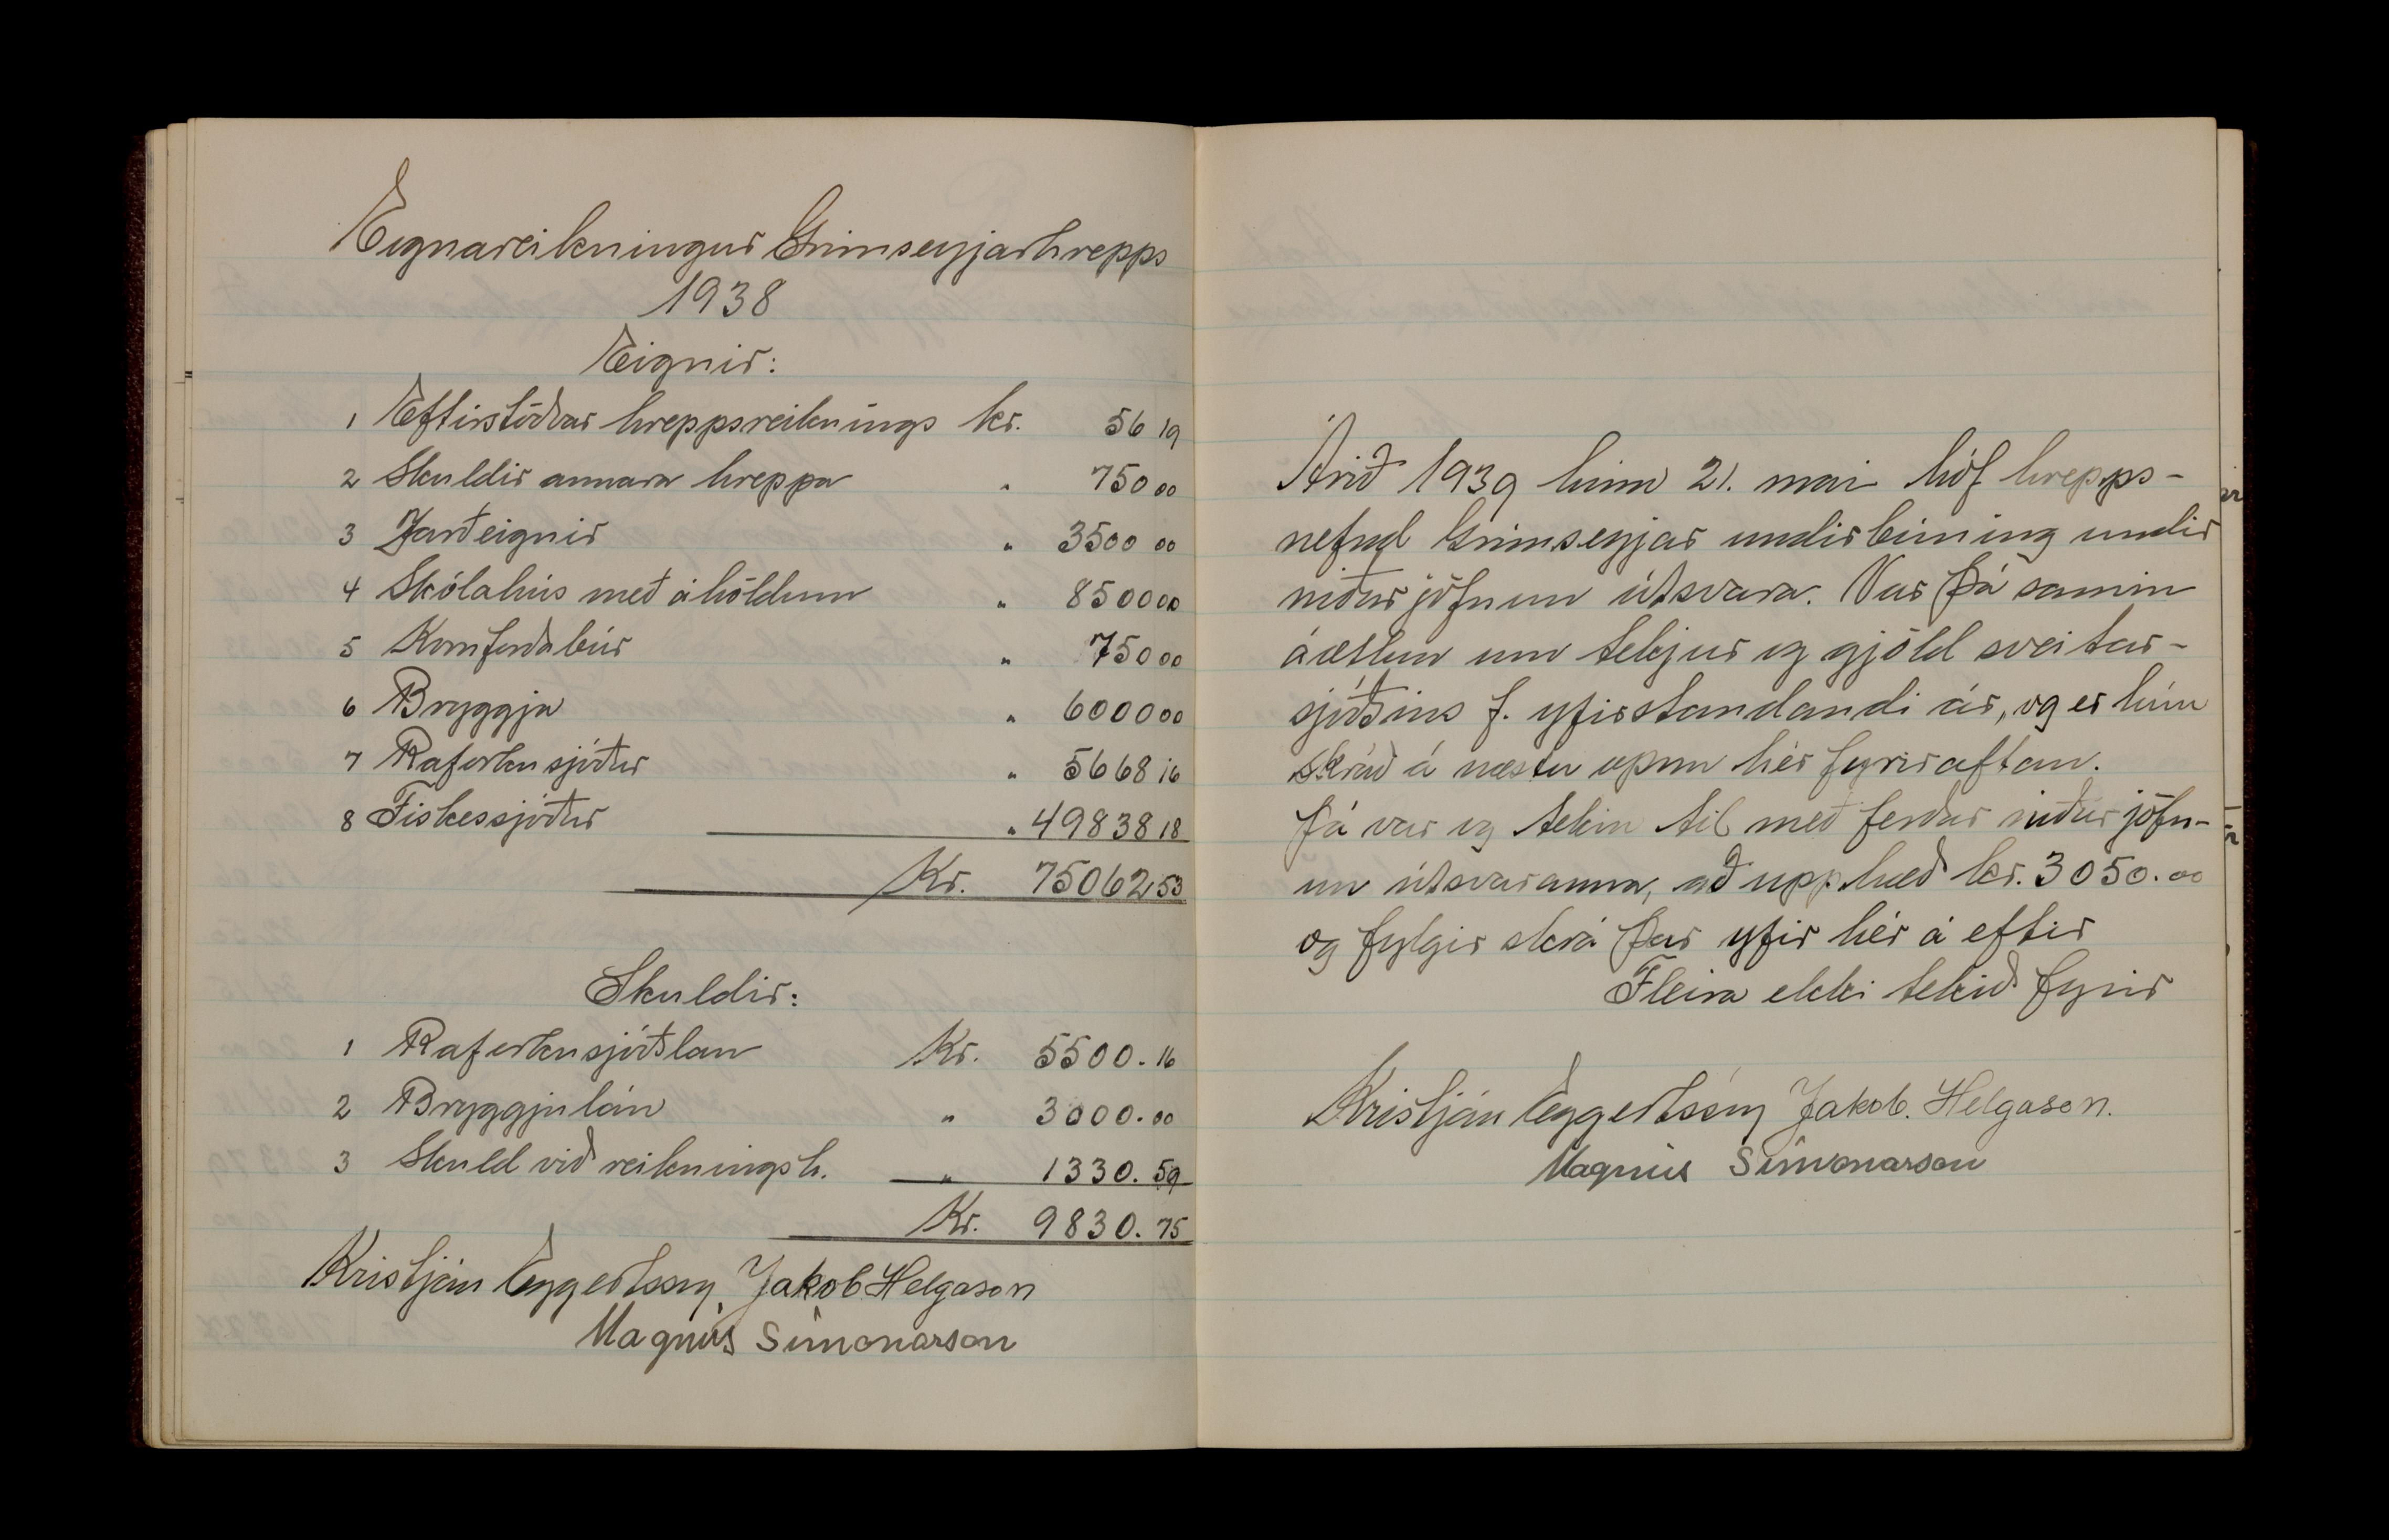 Eignareikningur Grímseyjarhrepps
1938
Eignir:
1 Eftirstöðvar hreppsreiknings kr. 56 19
2 Skuldir annara hreppa " 750 00
3 Jarðeignir " 3500 00
4 Skólahús með áhöldum " 8500 00
5 Kornforðabúr " 750 00
6 Bryggja " 6000 00
7 Raforkusjóður " 5668 16
8 Fiskessjóður " 49838 18
Kr. 75062 53
Skuldir:
1 Raforkusjóðslán Kr. 5500.16
2 Bryggjulán " 3000.00
3 Skuld við reikningsh. " 1330.59
Kr. 9830.75
Kristján Eggertsson, Jakob Helgason
Magnús Símonarson
Árið 1939 hinn 21. maí hóf hrepps-
nefnd Grímseyjar undirbúning undir
niðurjöfnun útsvara. Var þá samin
áætlun um tekjur og gjöld sveitar-
sjóðsins f. yfirstandandi ár, og er hún
skráð á næstu opnu hér fyrir aftan.
Þá var og tekin til meðferðar niðurjöfn-
un útsvaranna, að upphæð kr. 3050.00
og fylgir skrá þar yfir hér á eftir
Fleira ekki tekið fyrir
Kristján Eggertsson Jakob. Helgason.
Magnús Símonarson